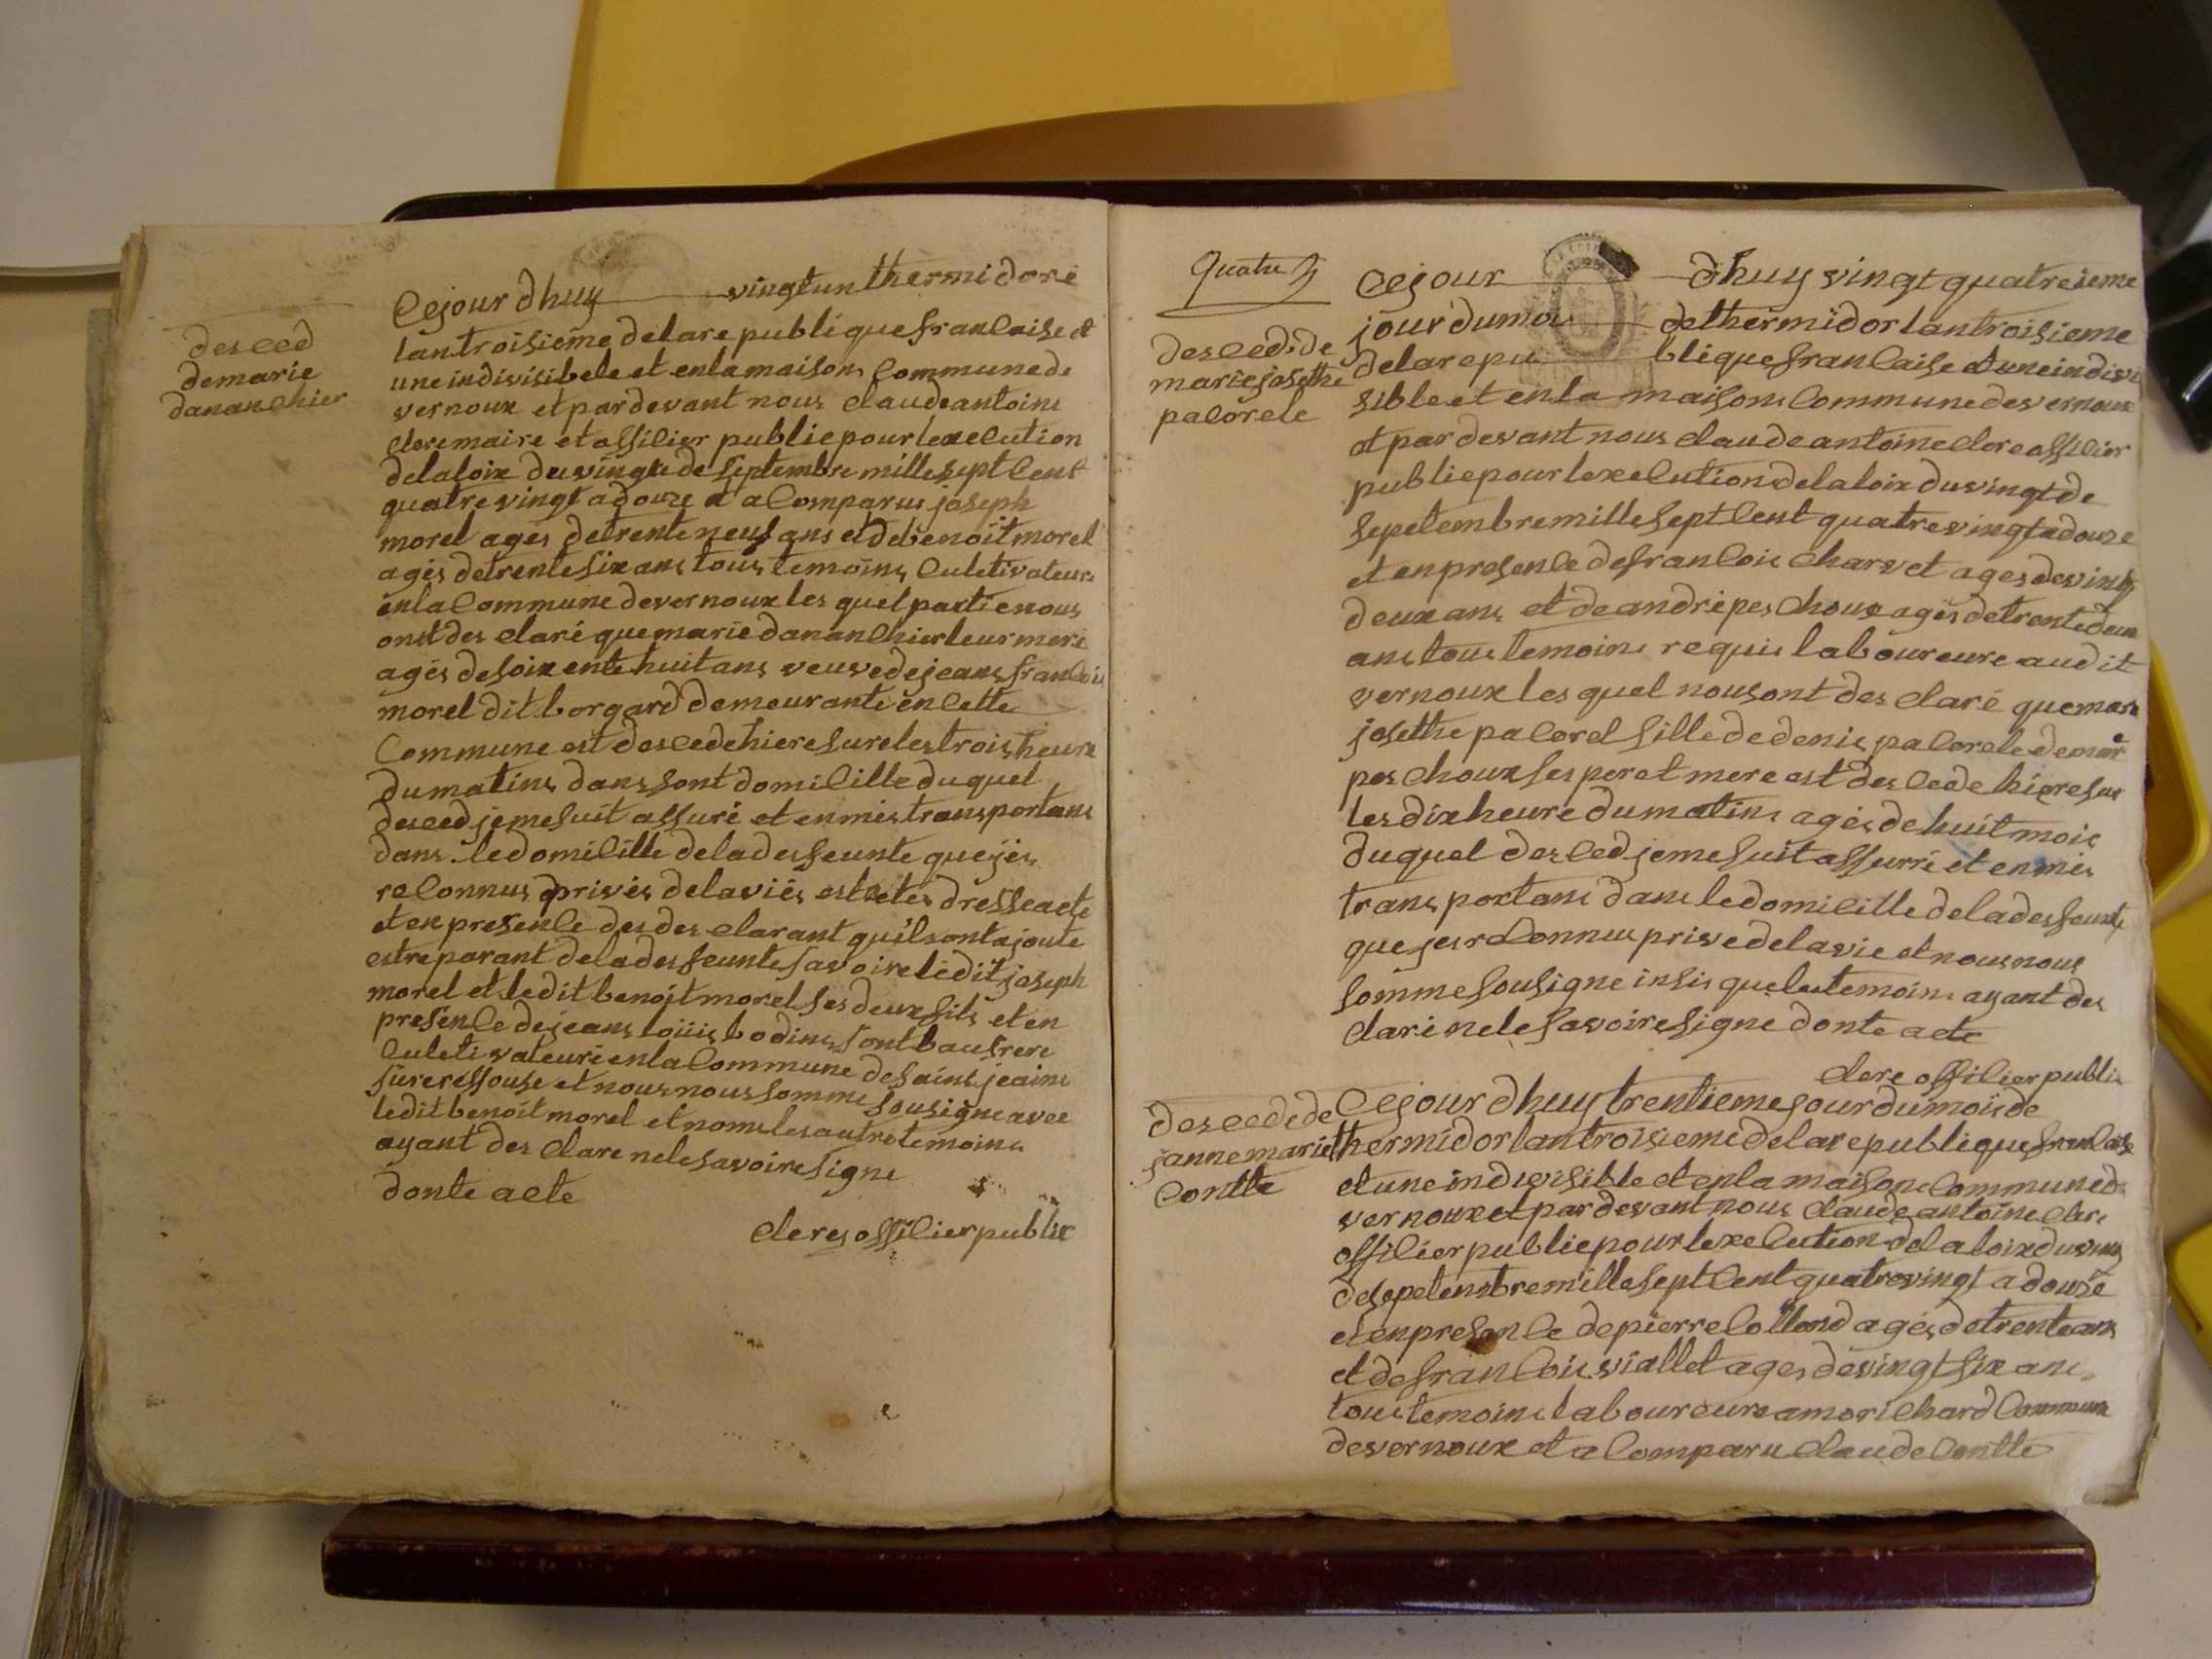 desced
demarie
dananchier
Cejour dhuy vingtun thermidore
lantroisieme delarepubliquefrancaise et
uneindivisibele et enlamaison Communede
vernoux et pardevant nous claudeantoine
clere maire et officier publicpourlexecution
delaloix duvingte de septembre millesept Cent
quatrevingt adouze a a Comparus joseph
morel agés detrenteneuf ans et debenoitmorel
agés detrentesixans tous temoins Culetivateure
enla Commune devernoux les quel partienous
onst des claré que marie dananchier leur mere
agés desoixente huit ans veuvedejeans francois
morel dit borgard demeurante en Cette
Commune est descedehiere surelestrois heure
dumatins dans sont domicille duquel
desced jemesuit assuré et enmestransportans
dans ledomicille deladesfeunte quejés
reConnus privés delaviés estetes dresseacte
et en presence desdes clarant quilsontajoute
estreparant deladesfeunte savoire ledit joseph
morel et ledit benoit morel ses deux fils et en
presence dejeans loüis bodins sont baufrere
Culetivateure enla Commune desaint jeaine
sureressouse et nous nous somme sousigneavec
ledit benoit morel et nomslesautretemoins
ayant des clare nelesavoiresigne
donte acte
clerej officier public
Quatre
desced de
mariejosethe
pacorele
Cejour dhuy vingt quatreieme
jourdumois dethermidor lantroisieme
delarepu bliquefrancaise et uneindivi
sibleet enla maison Communedevernoux
et pardevant nous claudeantoineclereofficier
publicpourlexecution delaloix duvingtde
sepetembremillesept Cent quatrevingtadouze
et enpresence defrancois charvet agesdevingt
deuxans et deandrépeschoux agés detrentedeux
ans tous temoins requis laboureure audit
vernoux les quel nousont des claré quemarie
josethe pacorel fille dedenis pacorele demarie
peschoux ses peret mere est descede hiere sur
les dix heure dumatins agés dehuit mois
duquel desced jemesuit assurré et enmes
transportans dans ledomicille deladesfeunte
quejesreConnu privedelavie et nousnous
sommesousigne insis quelestemoins ayant des
claré nelesavoiresigne donte acte
clere officier public
descedede
jannemarie
Contte
Cejour dhuy trentiemejourdumoisde
thermidor lantroisieme delarepubliquefrancaise
et uneindivisible et enla maison Communede
vernoux et pardevant nous claude antoineclere
officier publicpourlexecution delaloixduving
desepetembremillesept Cent quatrevingt adouse
et enpresence depierre Collond agésdetrenteans
et defrancois viallet ages devingt six ans
tous temoins laboureure amorichard Commune
devernoux et a Comparu claude Contte